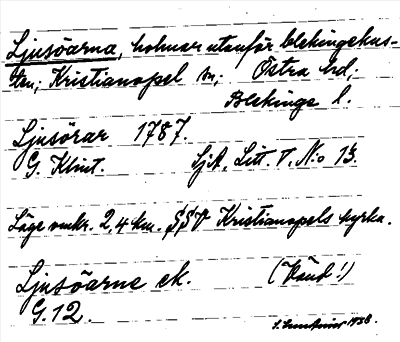 Ljusöarna, holmar utanför blekingekus-
ten; Kristianopel sn; Östra hd;
Blekinge l.
Ljusörar 1787.
G. Klint. Sj.A. Litt. V. N:o 13.
Läge omkr. 2,4 km. SSV Kristianopels kyrka.
Ljusöarne ek. (Känd!)
G. 12.
1938.